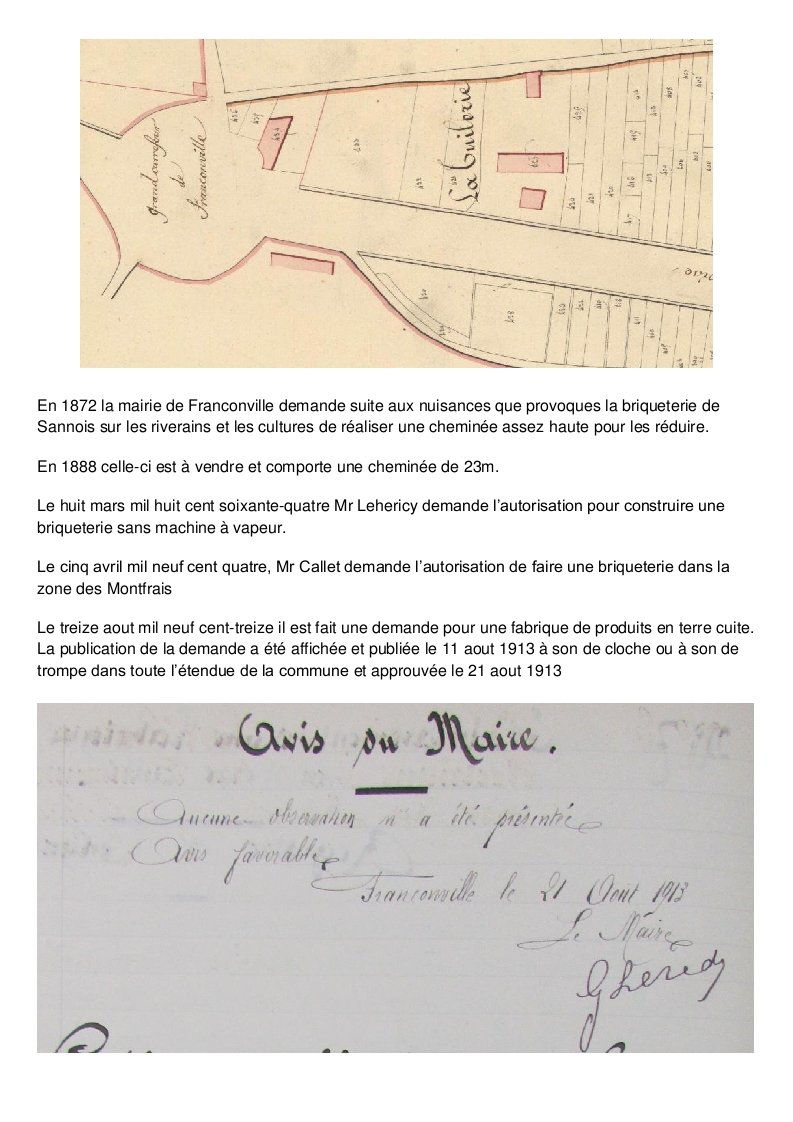 Grand carrefour
de
Franconville
La Tuilerie
En 1872 la mairie de Franconville demande suite aux nuisances que provoques la briqueterie de
Sannois sur les riverains et les cultures de réaliser une cheminée assez haute pour les réduire.
En 1888 celle-ci est à vendre et comporte une cheminée de 23m.
Le huit mars mil huit cent soixante-quatre Mr Lehericy demande l’autorisation pour construire une
briqueterie sans machine à vapeur.
Le cinq avril mil neuf cent quatre, Mr Callet demande l’autorisation de faire une briqueterie dans la
zone des Montfrais
Le treize aout mil neuf cent-treize il est fait une demande pour une fabrique de produits en terre cuite.
La publication de la demande a été affichée et publiée le 11 aout 1913 à son de cloche ou à son de
trompe dans toute l’étendue de la commune et approuvée le 21 aout 1913
Avis du Maire.
Aucune observation n'a été présentée
Avis favorable
Franconville le 21 Aout 1913
Le Maire